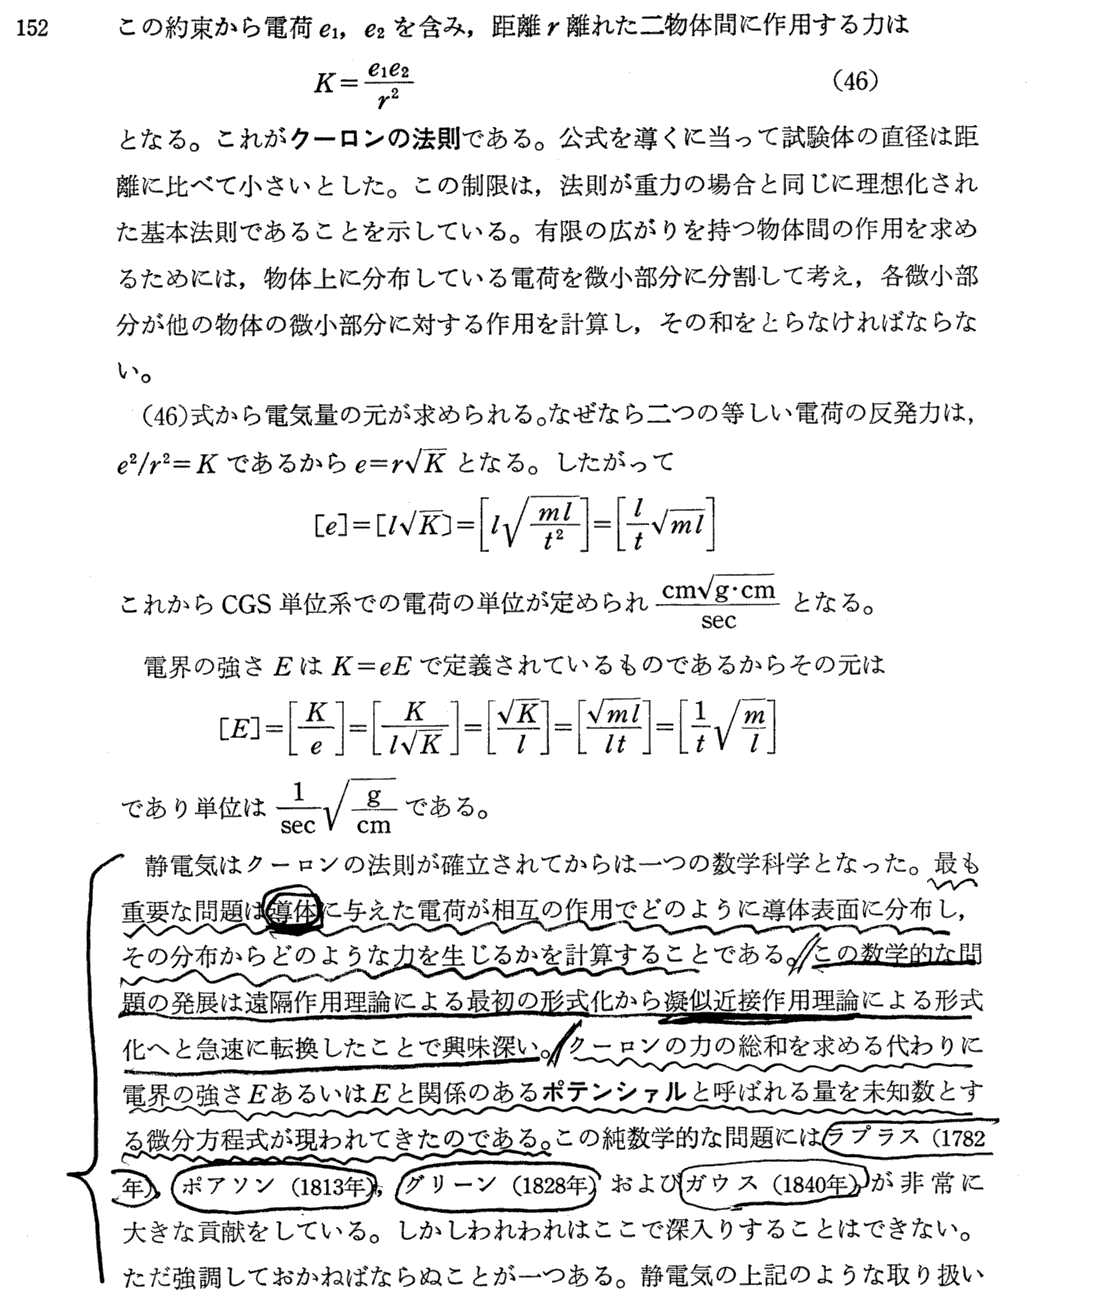 152
この約束から電荷 e₁, e₂ を含み，距離 r 離れた二物体間に作用する力は
K=e₁e₂/r² (46)
となる。これがクーロンの法則である。公式を導くに当って試験体の直径は距
離に比べて小さいとした。この制限は，法則が重力の場合と同じに理想化され
た基本法則であることを示している。有限の広がりを持つ物体間の作用を求め
るためには，物体上に分布している電荷を微小部分に分割して考え，各微小部
分が他の物体の微小部分に対する作用を計算し，その和をとらなければならな
い。
(46)式から電気量の元が求められる。なぜなら二つの等しい電荷の反発力は，
e²/r²=K であるから e=r√K となる。したがって
[e]=[l√K]=[l√(ml/t²)]=[l/t √ml]
これから CGS 単位系での電荷の単位が定められ cm√(g·cm)/sec となる。
電界の強さ E は K=eE で定義されているものであるからその元は
[E]=[K/e]=[K/(l√K)]=[√K/l]=[√ml/lt]=[1/t √(m/l)]
であり単位は 1/sec √(g/cm) である。
静電気はクーロンの法則が確立されてからは一つの数学科学となった。最も
重要な問題は導体に与えた電荷が相互の作用でどのように導体表面に分布し，
その分布からどのような力を生じるかを計算することである。この数学的な問
題の発展は遠隔作用理論による最初の形式化から擬似近接作用理論による形式
化へと急速に転換したことで興味深い。クーロンの力の総和を求める代わりに
電界の強さ E あるいは E と関係のあるポテンシァルと呼ばれる量を未知数とす
る微分方程式が現われてきたのである。この純数学的な問題にはラプラス（1782
年），ポアソン（1813年），グリーン（1828年）およびガウス（1840年）が非常に
大きな貢献をしている。しかしわれわれはここで深入りすることはできない。
ただ強調しておかねばならぬことが一つある。静電気の上記のような取り扱い